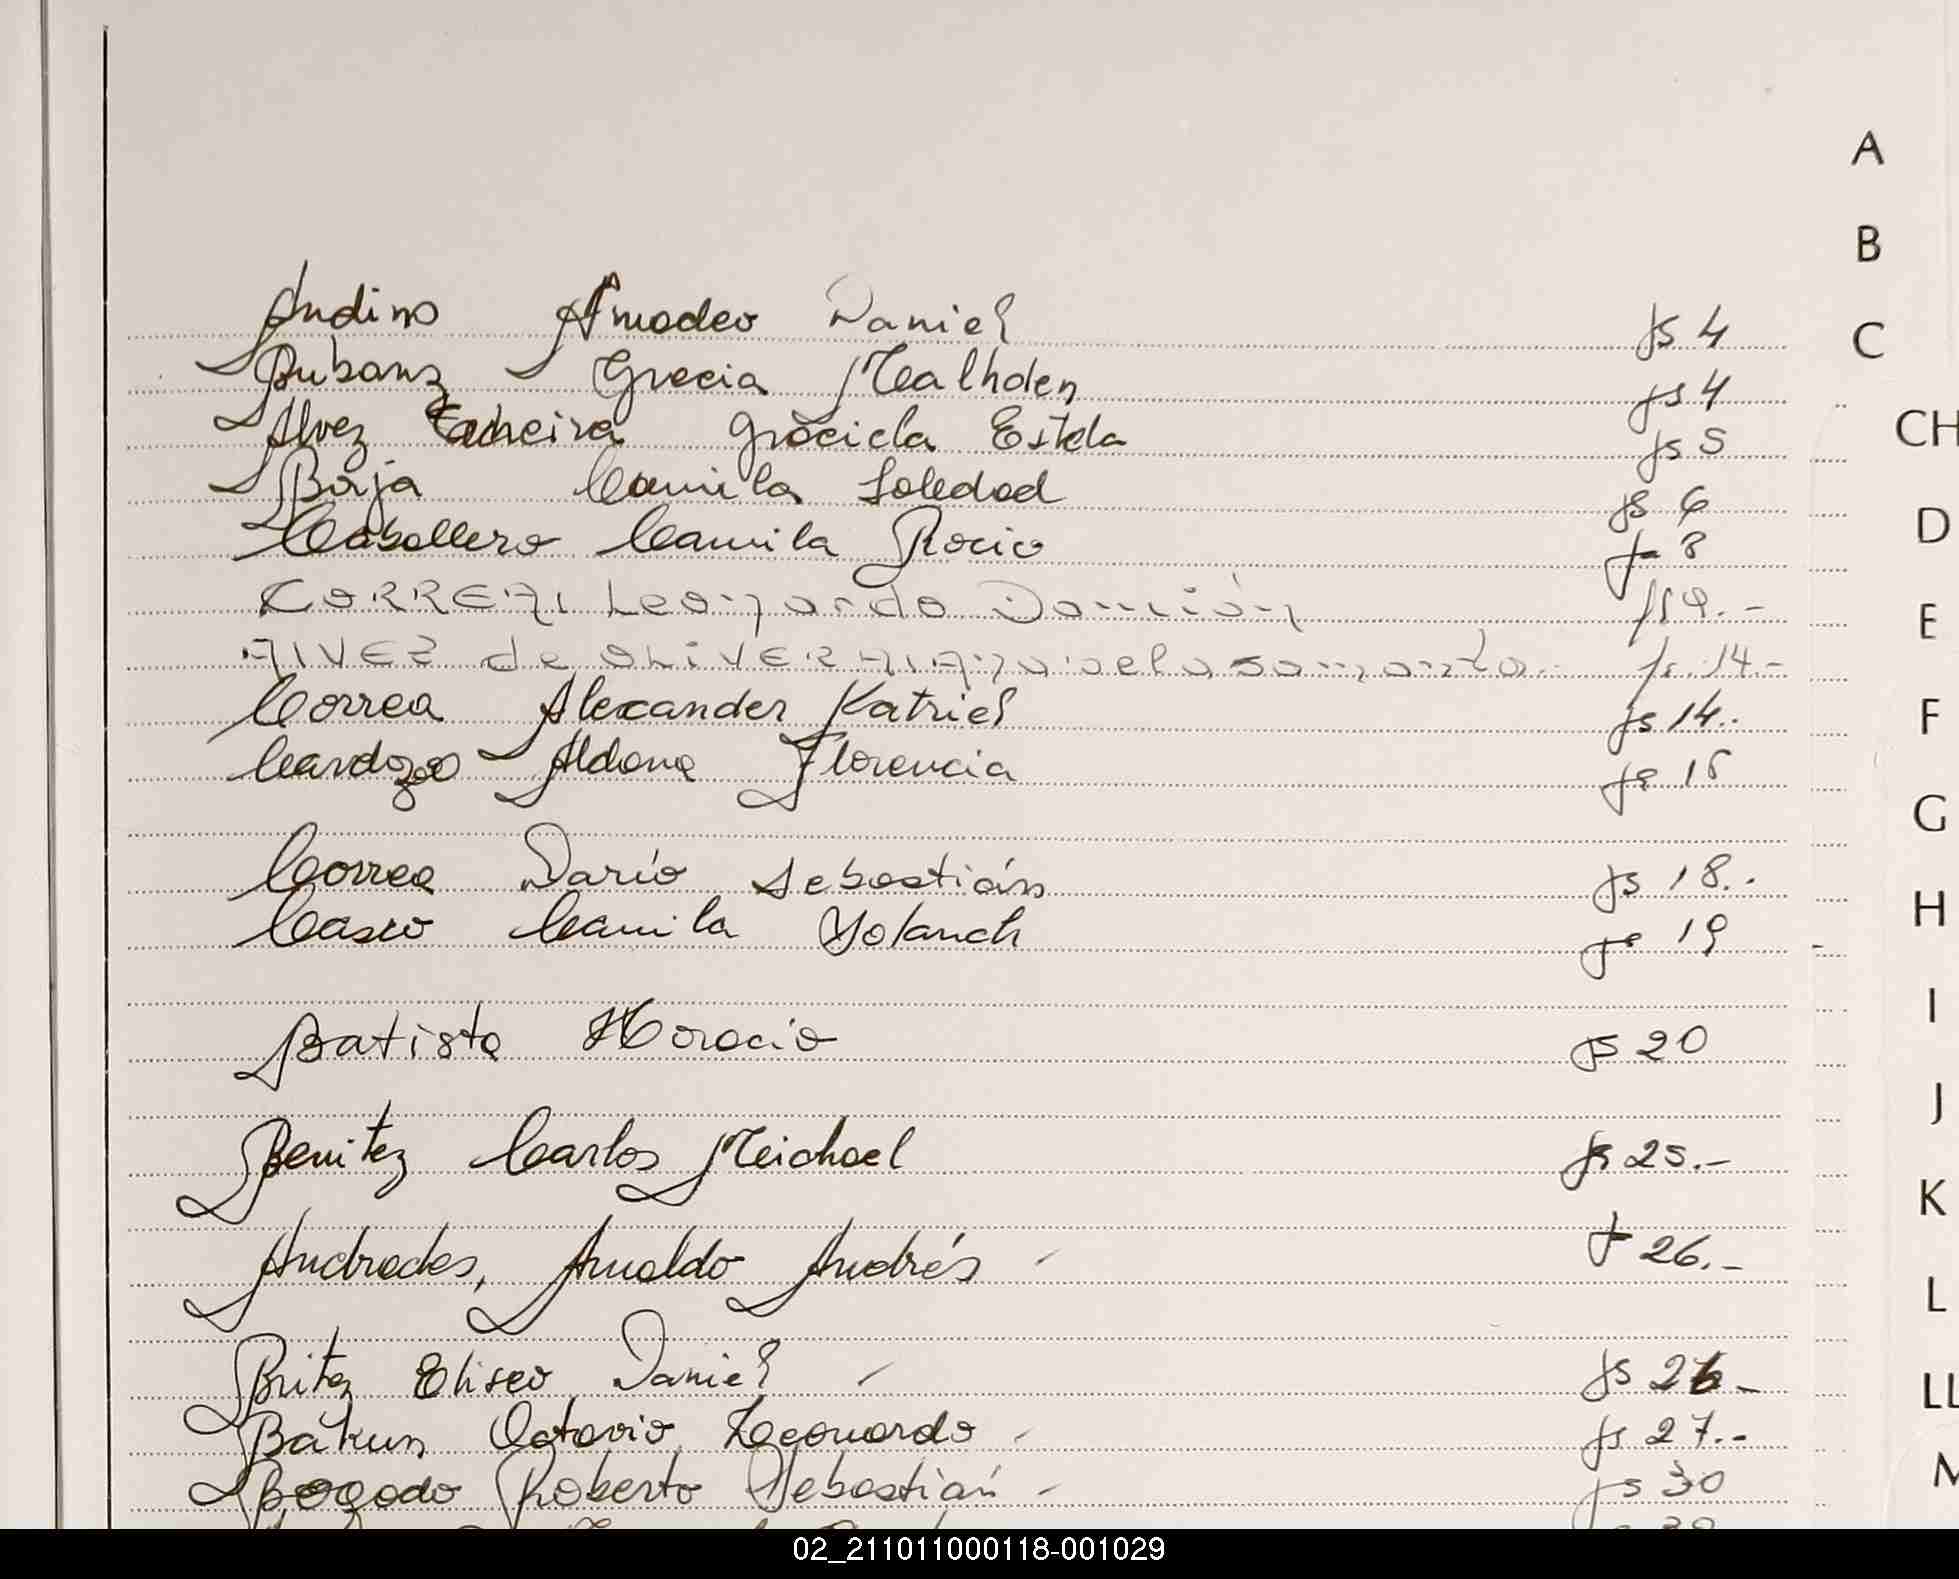 Andino Amadeo Daniel fs 4
Bubanz Grecia Mealhden fs 4
Alvez Graciela Estela fs 5
Baja Camila Soledad fs 6
Caballero Camila Rocio fs 8
CORREA Leonardo Damián fs 9.-
ALVEZ de OLIVERA samanta fs. 14.-
Correa Alexander Katriel fs 14..
Cardozo Aldana Florencia fs 15
Correa Darío Sebastián fs 18..
Casco Camila fs 19
Batista Horacio fs 20
Benitez Carlos Meichael fs 25.-
Andrades, Arnaldo Andrés - f 26.-
Britez Eliseo Daniel - fs 26-
Bakun Octavio Leonardo - fs 27.-
Bogado Roberto Sebastián - fs 30
A
B
C
CH
D
E
F
G
H
I
J
K
L
LL
M
02_211011000118-001029